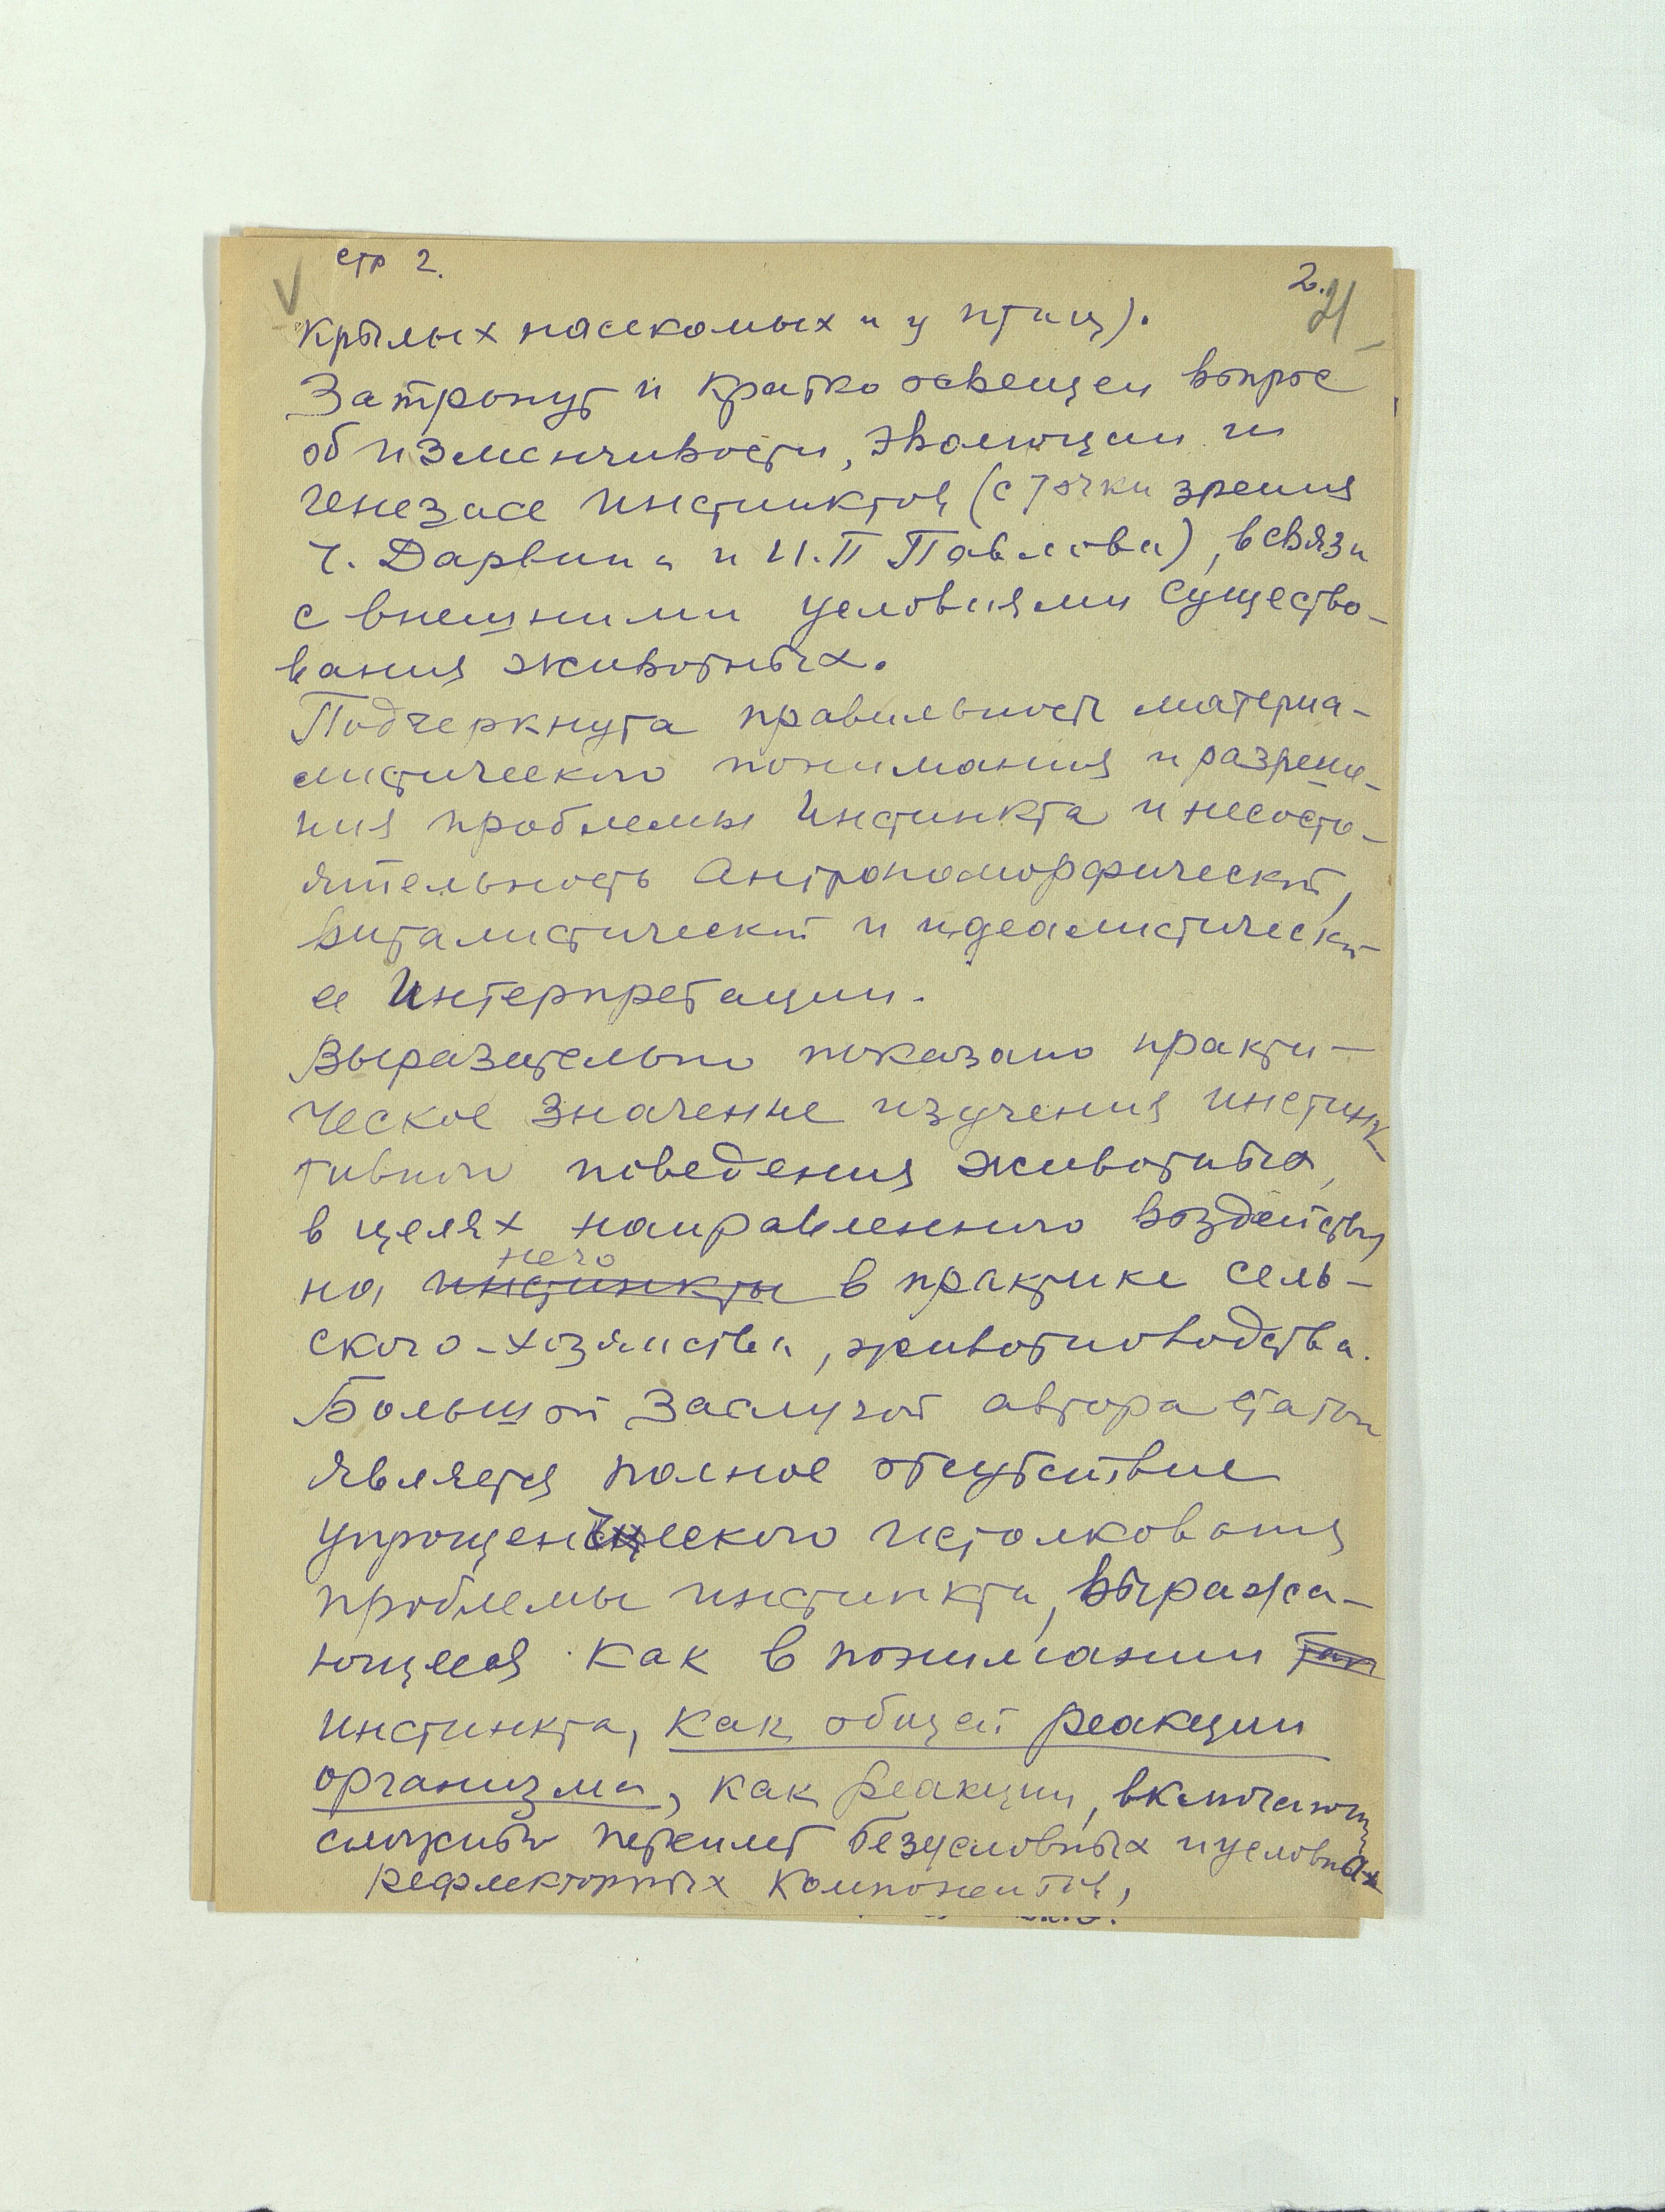 стр 2.
2.
21
V
крылых насекомых и у птиц).
Затронут и кратко освещен вопрос
об изменчивости, эволюции и
генезисе инстинктов (с точки зрения
Ч. Дарвина и И.П Павлова), в связи
с внешними условиями существо-
вания животных.
Подчеркнута правильность материа-
листического понимания и разреше-
ния проблемы Инстинкта и несосто-
ятельность Антропоморфической,
виталистической и идеалистической
ее Интерпретации.
Выразительно показано практи-
ческое значение изучения инстинк
тивного поведения животных,
в целях направленного воздействия
него
на инстинкты в практике сель-
ского-хозяйства, животноводства.
Большой заслугой автора статьи
является полное отсутствие
упрощенческого истолкования
проблемы инстинкта, выража-
ющееся как в понимании
инстинкта, как общей реакции
организма, как реакции, включающ
сложный переплет безусловных и условных
рефлекторных компонентов,